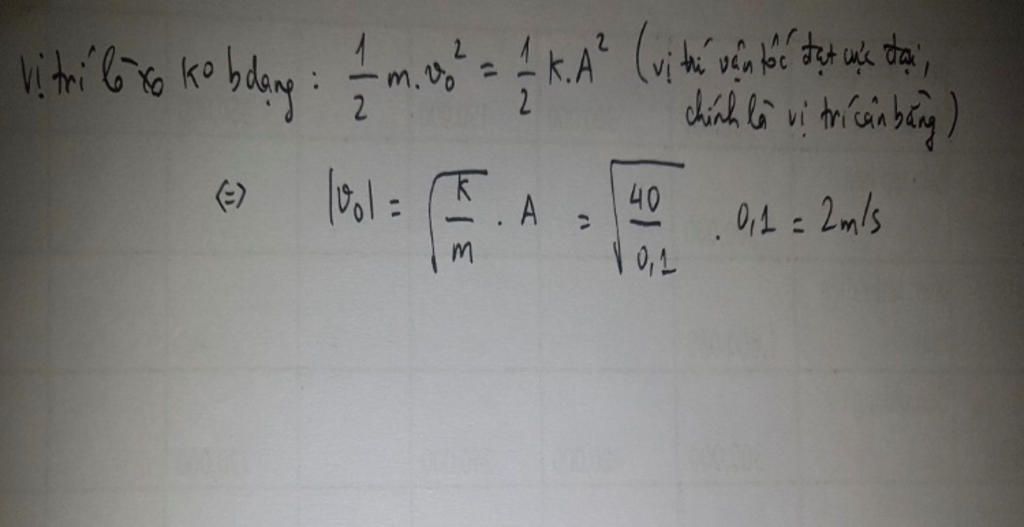 Vị trí lò xo ko bdạng: 1/2 m.v₀² = 1/2 k.A² (vị trí vận tốc đạt cực đại,
chính là vị trí cân bằng)
⇔ |v₀| = √(k/m) . A = √(40/0,1) . 0,1 = 2m/s